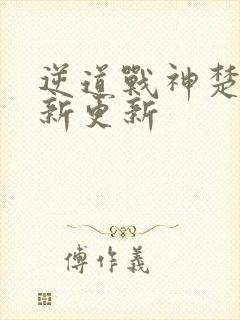 逆道戰神楚
新更新
傅作義